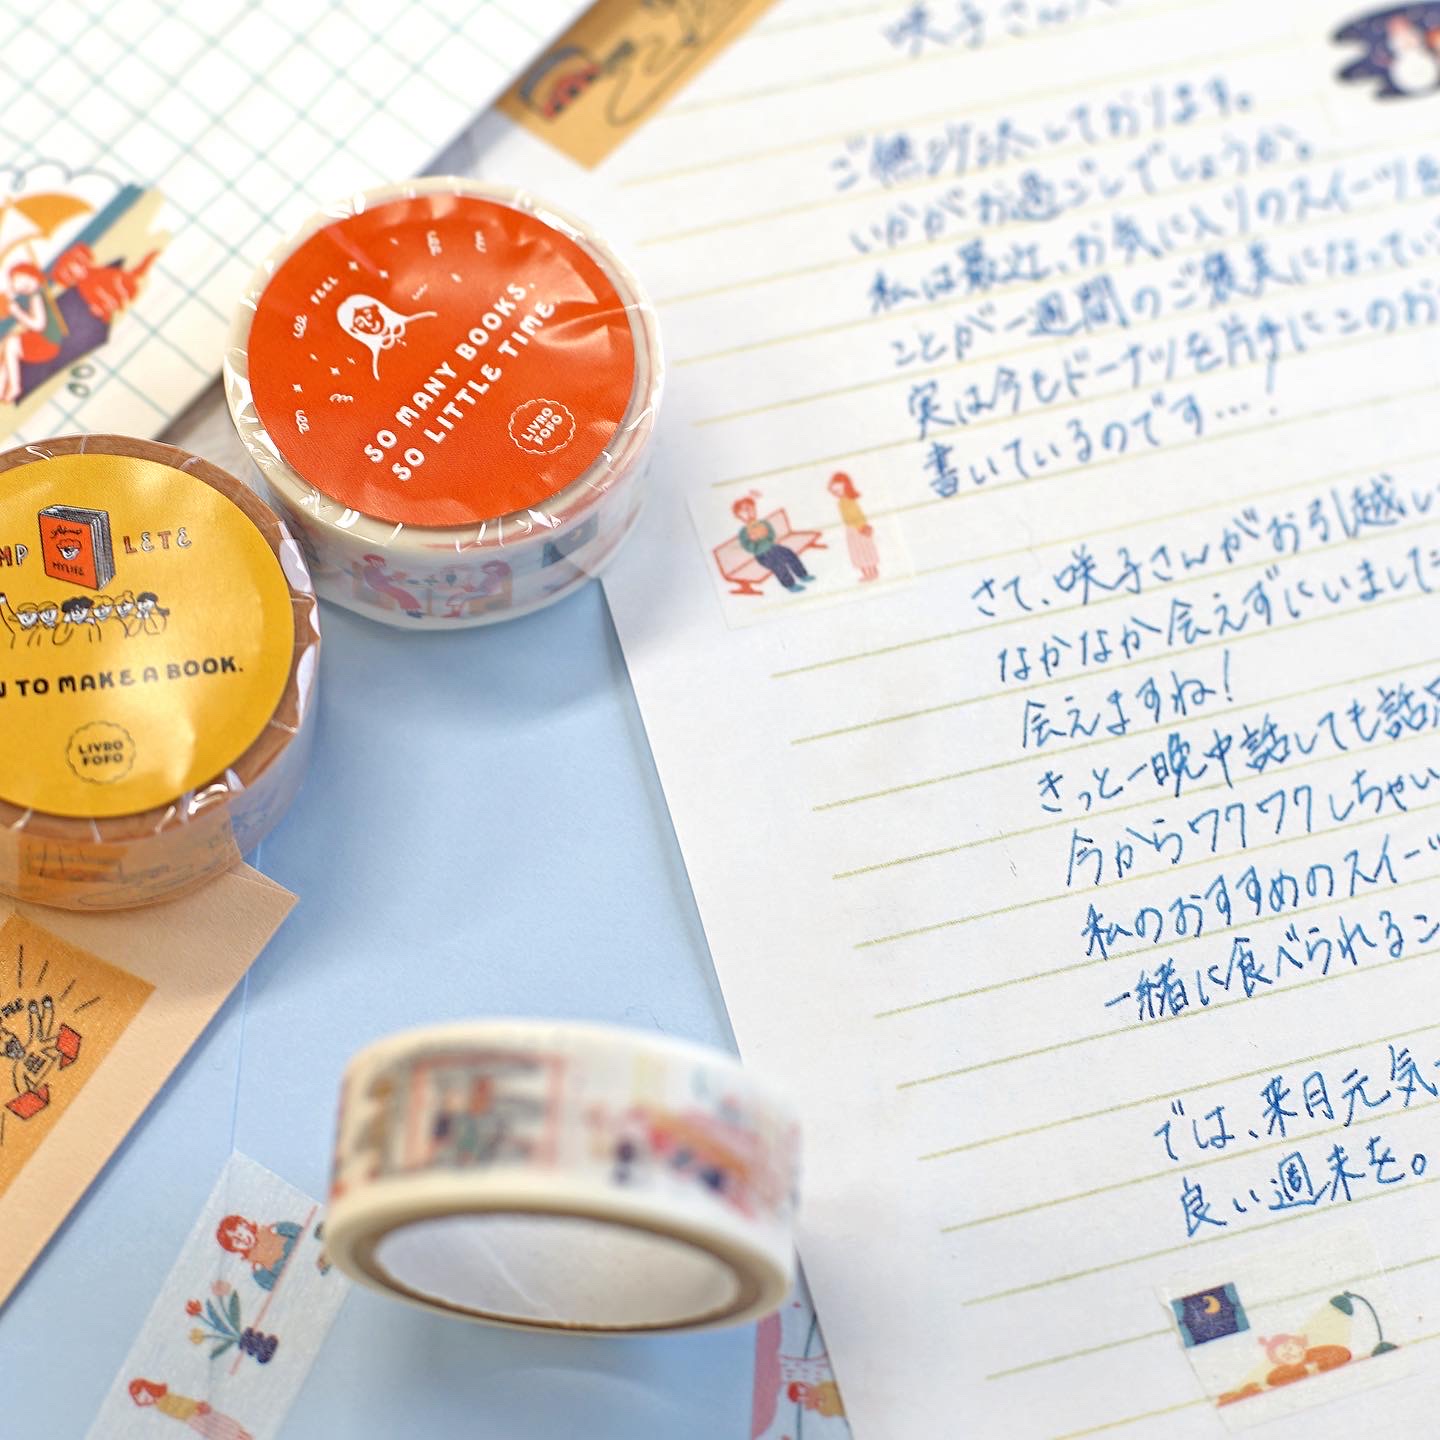 咲子さんへ
ご無沙汰しております。
いかがお過ごしでしょうか。
私は最近、お気に入りのスイーツを
ことが一週間のご褒美になってい
実は今もドーナツを片手にこのお
書いているのです…！
さて、咲子さんがお引越し
なかなか会えずにいました
会えますね！
きっと一晩中話しても話足
今からワクワクしちゃい
私のおすすめのスイーツ
一緒に食べられるこ
では、来月元気
良い週末を。
FEEL
SO MANY BOOKS.
SO LITTLE TIME.
LIVRO
FOFO
MP LETE
MYLIFE
TO MAKE A BOOK.
LIVRO
FOFO